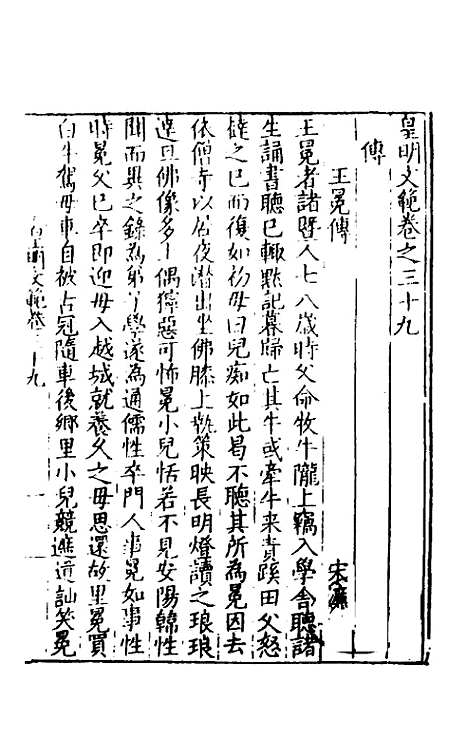 皇明文範卷之三十九
傳
王冕傳
宋濂
王冕者諸暨人七八歲時父命牧牛隴上竊入學舍聽諸
生誦書聽已輒默記暮歸亡其牛或牽牛来責蹊田父怒
撻之已而復如初母曰兒痴如此曷不聽其所為冕因去
依僧寺以居夜潜出坐佛膝上執策映長明燈讀之琅琅
達旦佛像多土偶獰惡可怖冕小兒恬若不見安陽韓性
聞而異之錄為弟子學遂為通儒性卒門人事冕如事性
時冕父已卒即迎母入越城就養久之母思還故里冕買
白牛駕母車自被古冠隨車後鄉里小兒競遮道訕笑冕
皇明文範卷三十九
一